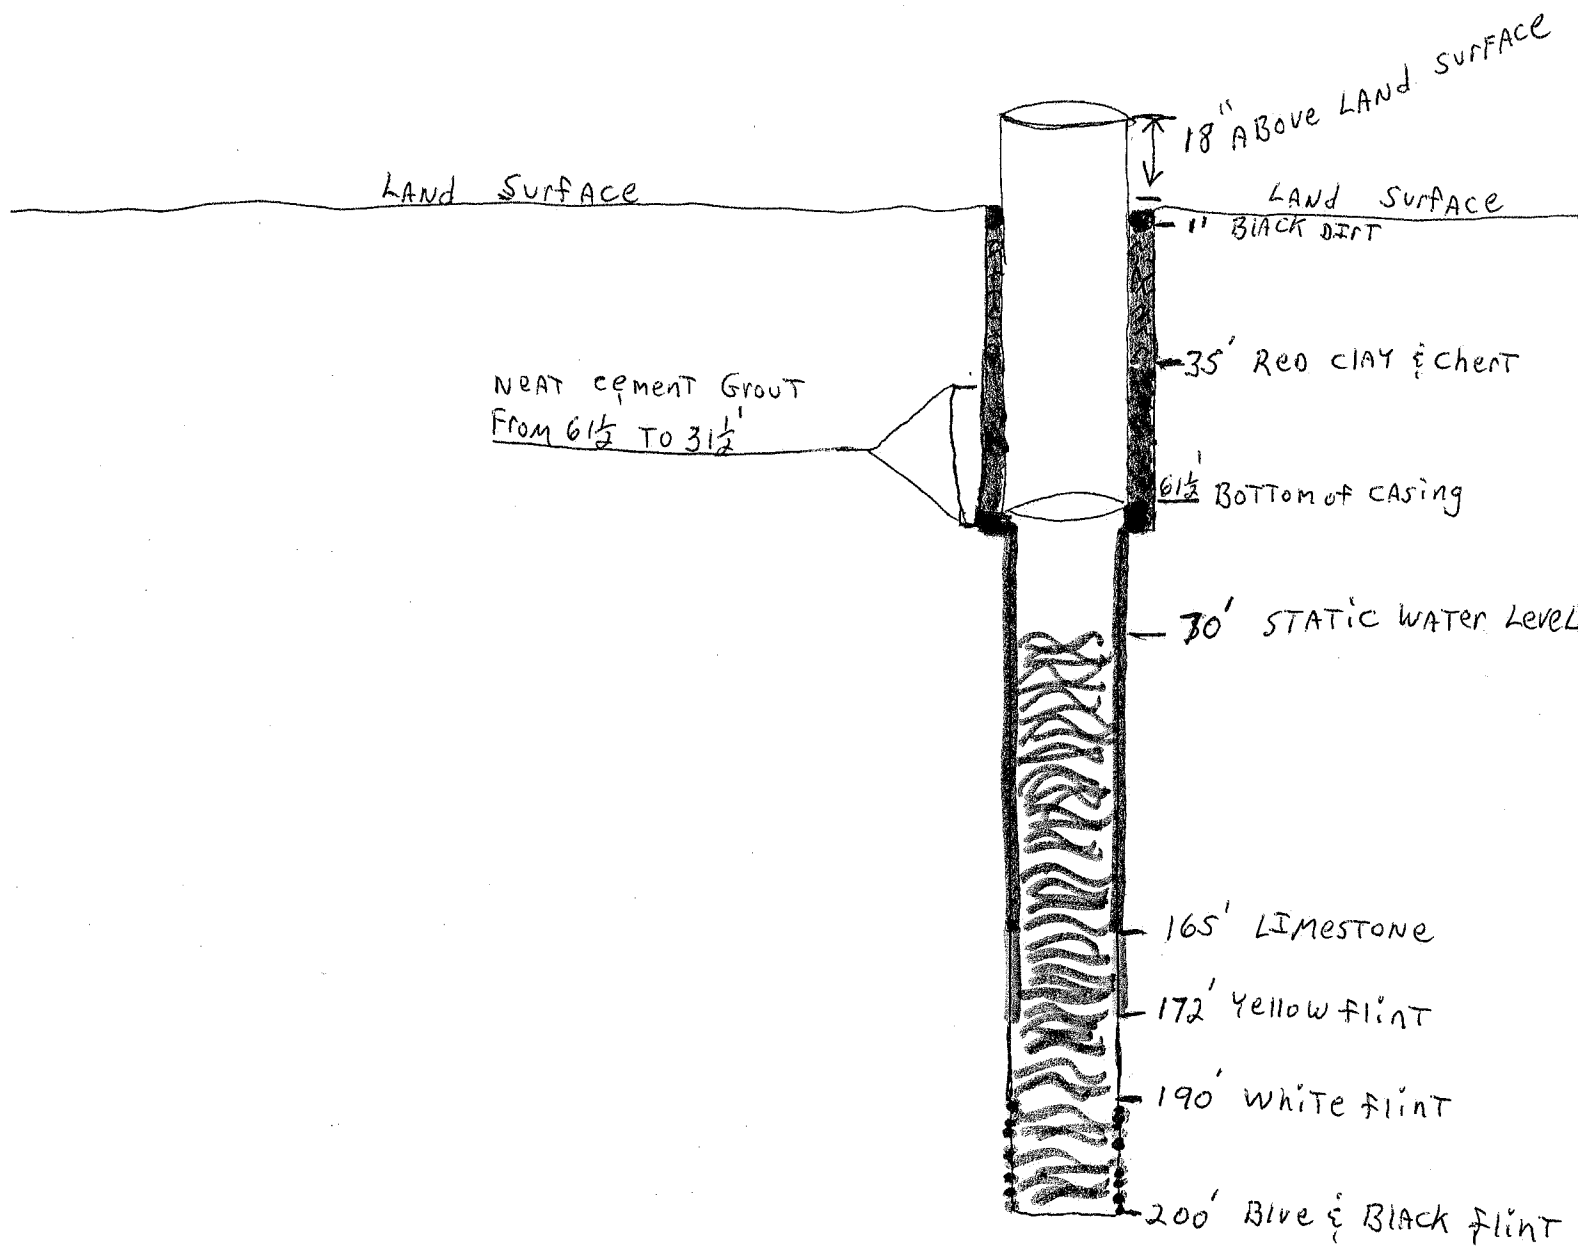 18" ABove LANd SurFACe
LANd SurfACe
LANd SurfACe
1" BlACK DIrT
35' ReD ClAY & CherT
NeAT CemenT GrouT
From 61½ To 31½'
61½' BoTTom of CAsing
70' STATiC WATer LeveL
165' LImesTONe
172' Yellow flinT
190' WhiTe flinT
200' Blue & BlACK flinT